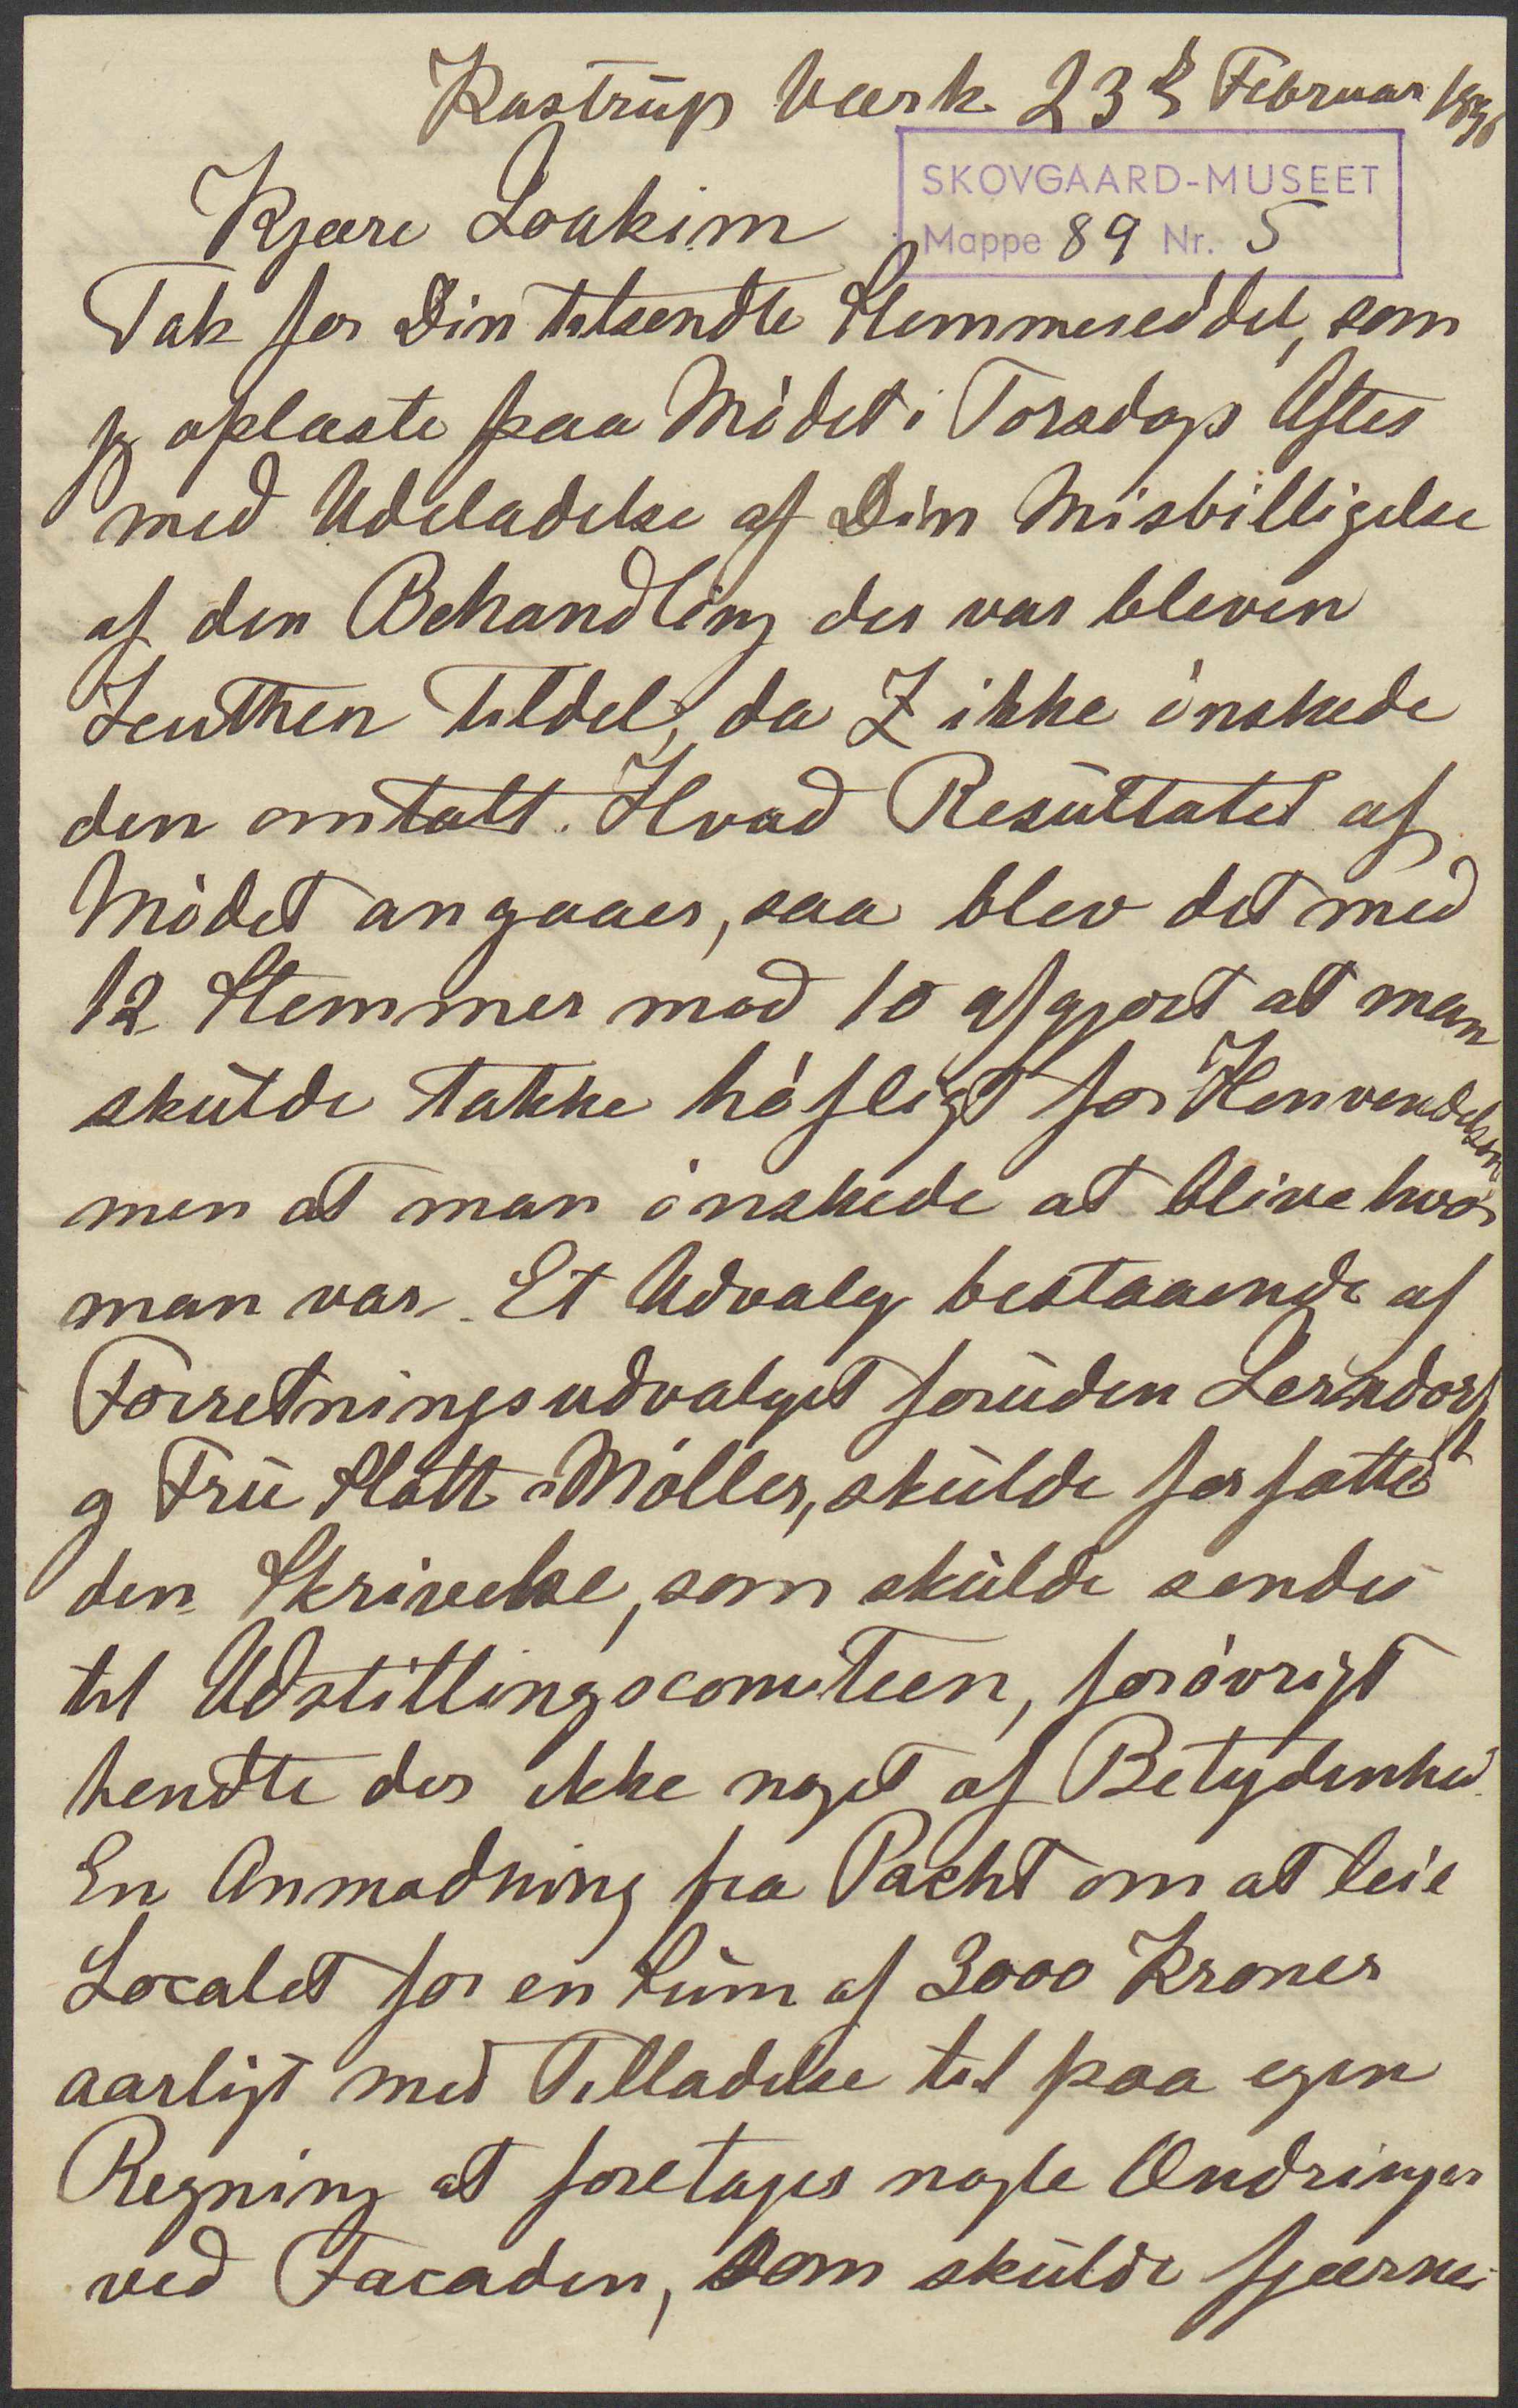 Kastrup Værk 23d Februar 1896
SKOVGAARD-MUSEET
Mappe 89 Nr. 5
Kjære Joakim
Tak for Din tilsendte Stemmeseddel, som
jeg oplæste paa Mödet i Torsdags Aftes
med Udeladelse af Din Misbilligelse
af den Behandling der var bleven
Zeuthen tildel, da Z ikke önskede
den omtalt. Hvad Resultatet af
Mödet angaaer, saa blev det med
12 Stemmer mod 10 afgjort at man
skulde takke höfligt for Henvendelsen
men at man önskede at blive hvor
man var. Et Udvalg bestaaende af
Forretningsudvalget foruden Lerndorff
og Fru Slott-Möller, skulde forfatte
den Skrivelse, som skulde sendes
til Udstillingscomiteen, forövrigt
hendte der ikke noget af Betydenhed.
En Anmodning fra Pacht om at leie
Localet for en Sum af 3000 Kroner
aarligt med Tilladelse til paa egen
Regning at foretages nogle Ændringer
ved Facaden, som skulde fjærnes